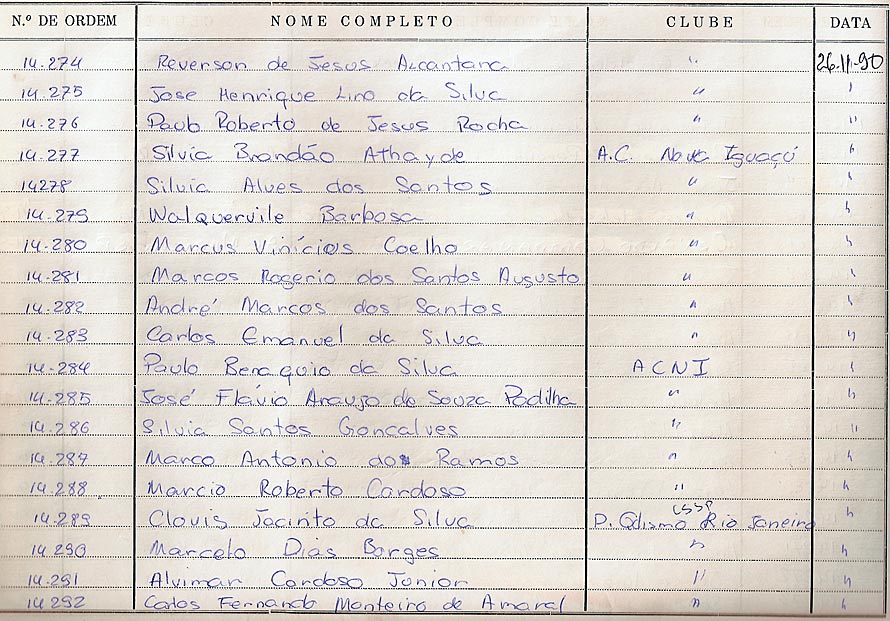 N.º DE ORDEM NOME COMPLETO CLUBE DATA
14.274 Reverson de Jesus Alcantara " 26.11.90
14.275 Jose Henrique Lino da Silva " "
14.276 Paulo Roberto de Jesus Rocha " "
14.277 Silvia Brandão Athayde A.C. Nova Iguaçú "
14278 Silvia Alves dos Santos " "
14.279 Walquervile Barbosa " "
14.280 Marcus Vinícios Coelho " "
14.281 Marcos Rogerio dos Santos Augusto " "
14.282 André Marcos dos Santos " "
14.283 Carlos Emanuel da Silva " "
14.284 Paulo Benaquio da Silva ACNI "
14.285 José Flávio Araujo de Souza Padilha " "
14.286 Silvia Santos Goncalves " "
14.287 Marco Antonio dos Ramos " "
14.288 Marcio Roberto Cardoso " "
14.289 Clovis Jacinto da Silva Rio Janeiro "
14.290 Marcelo Dias Borges " "
14.291 Alvimar Cardoso Junior " "
14.292 Carlos Fernando Monteiro de Amaral " "